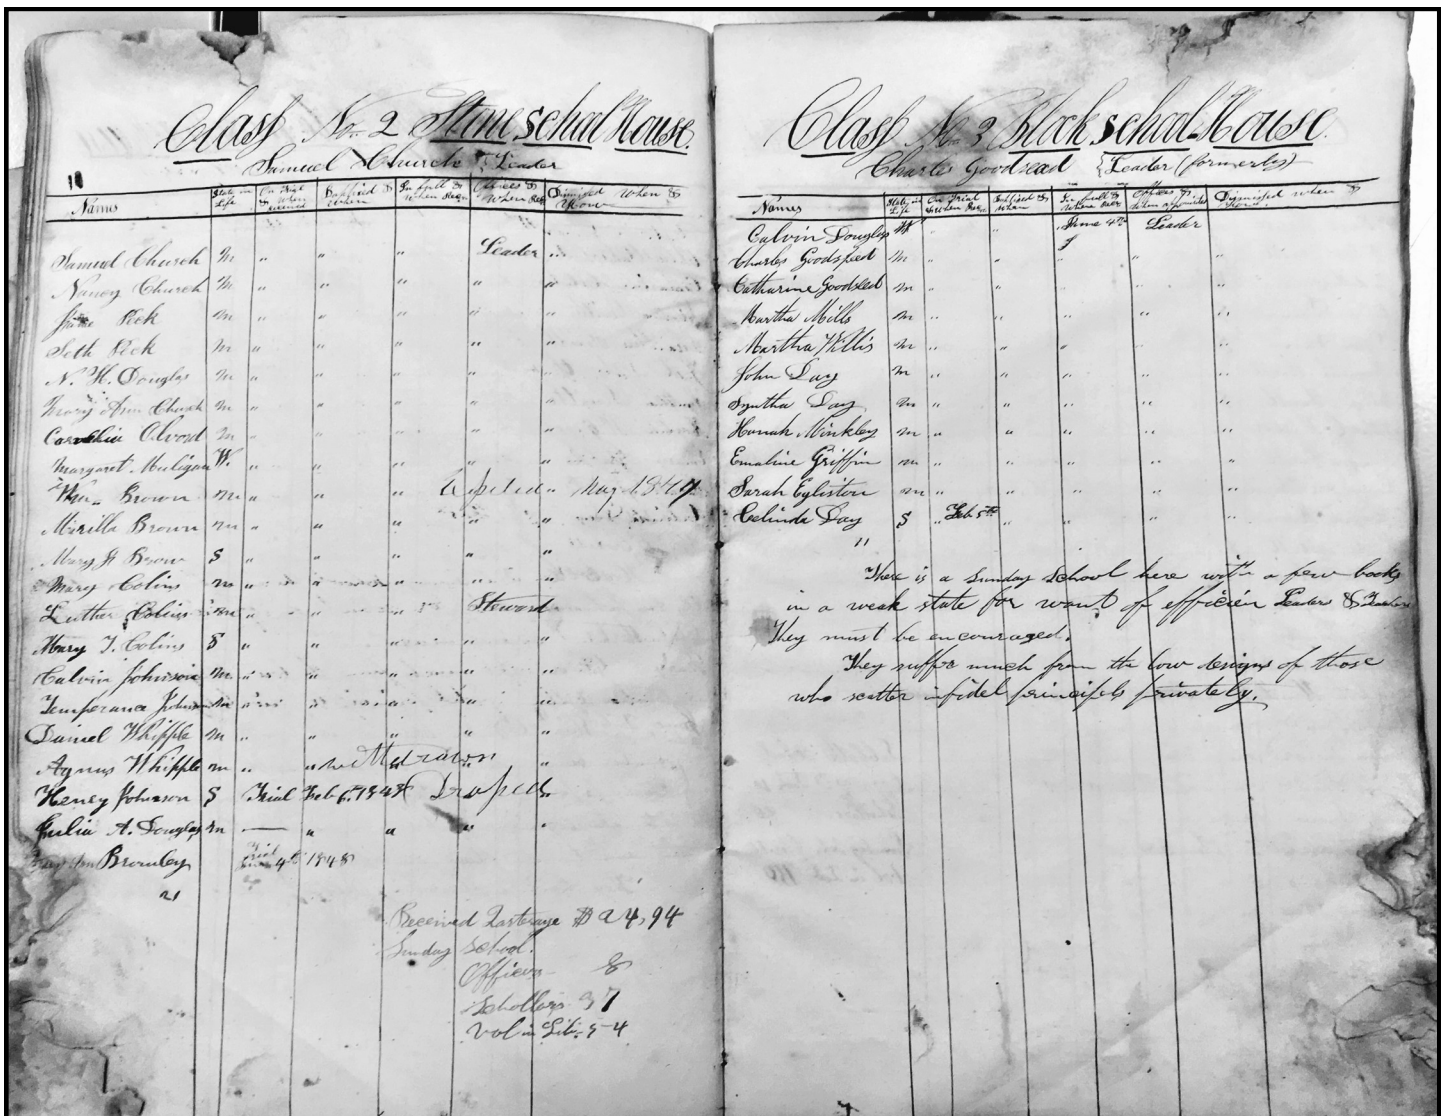 Class No. 2 Stone school House.
Samuel Church { Leader
10
Names State in Life On Trial & when Baptised & when In full & when Offices & when Dismissed & how When &
Samuel Church M " " " Leader "
Nancy Church M " " " " "
Peck M " " " " "
Seth Peck M " " " " "
N. H. Douglas M " " " " "
Mary Ann Church M " " " " "
Cornelia Alvord M " " " " "
Margaret Muligan W. " " " " "
Wm. Brown m " " " May 1847
Mirilla Brown m " " " " "
Mary A Brown S " " " " "
Mary Colins m " " " " "
Luther Colins m " " " Steward
Mary J. Colins S " " " " "
Calvin Johnson m " " " " "
Temperance Johnson m " " " " "
Daniel Whipple m " " " " "
Agnus Whipple m " " withdrawn "
Henry Johnson S Trial Feb 6. 1848 Droped "
Julia A. Douglas m — " " " "
Bromley 4th 1848
21
Received Quaterage $ 24,94
Sunday school.
Officers 8
Schollars 37
Vol in Lib. 54
Class No. 3 Block school-House.
Charles Goodsead { Leader (formerly)
Names State in Life On Trial & when Baptised & when In full & when Offices & when appointed Dismissed when & how
Calvin Douglas M " " June 4th Leader
Charles Goodseed M " " " " "
Catharine Goodseed m " " " " "
Martha Mills m " " " " "
Martha Willis m " " " " "
John Day m " " " " "
Syntha Day m " " " " "
Hanah Minkley m " " " " "
Emaline Griffin m " " " " "
Sarah Egliston m " " " " "
Celinda Day S " Feb 5th " " " "
11
There is a Sunday School here with a few books
in a weak state for want of efficien Leader & Teachers
They must be encouraged.
They suffer much from the low designs of those
who scatter infidel principels privately.